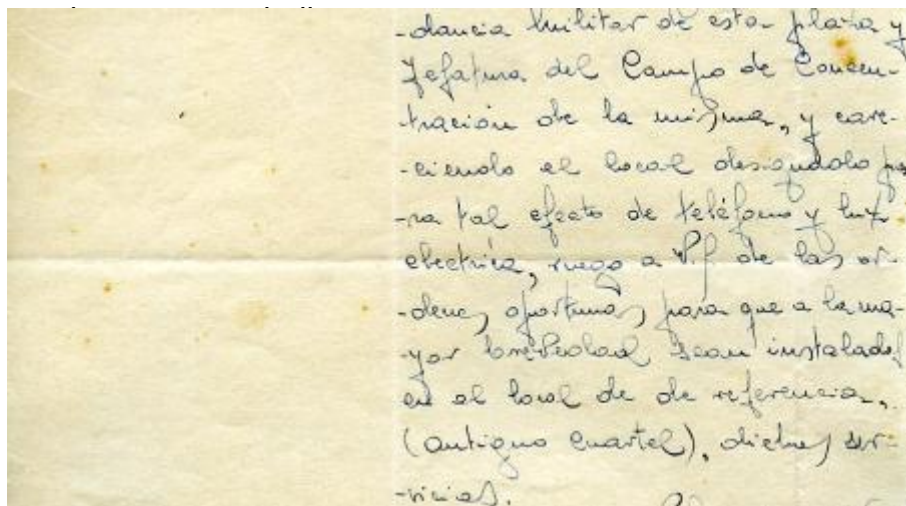 -dancia Militar de esta plaza y
Jefatura del Campo de Concen-
-tración de la misma, y care-
-ciendo el local designado pa
-ra tal efecto de teléfono y luz
electrica, ruego a V.S. de las or-
-denes oportunas para que a la ma-
-yor brevedad sean instalados
en el local de de referencia,
(antiguo cuartel), dichos ser-
-vicios.